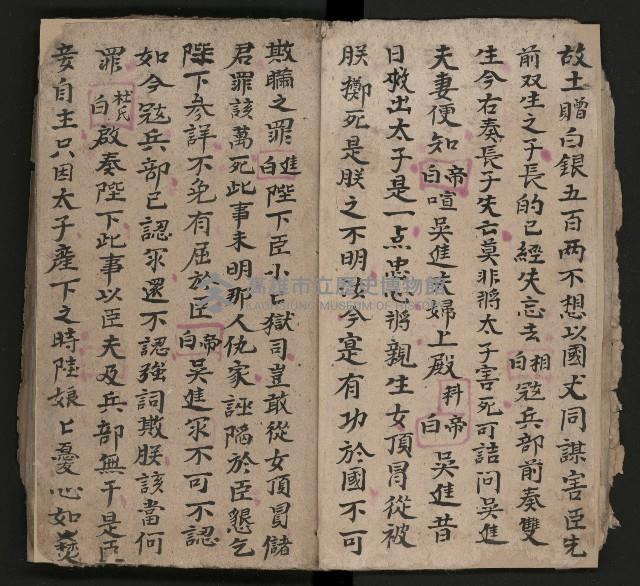 故土贈白銀五百兩不想以國丈同謀害臣先
前双生之子長的已經失忘去 相白 寇兵部前奏雙
生今右奏長子失亡莫非將太子害死可詰问吳進
夫妻便知 帝白 喧吳進夫婦上殿 科 帝白 吳進昔
日救出太子是一点忠心將親生女頂冒從被
朕擲死是朕之不明孤今寔有功於國不可
欺瞞之罪 進白 陛下臣小亡獄司豈敢從女頂冒儲
君罪該萬死此事未明那人仇家誣陷於臣懇乞
陛下参詳不免有屈於臣 帝白 吳進罪不可不認
如今寇兵部已認罪還不認強詞欺朕該當何
罪 杜氏白 啟奏陛下此事以臣夫及兵部無干是臣
妾自主只因太子產下之時陸娘亡憂心如焚
高雄市立歷史博物館
KAOHSIUNG MUSEUM OF HISTORY